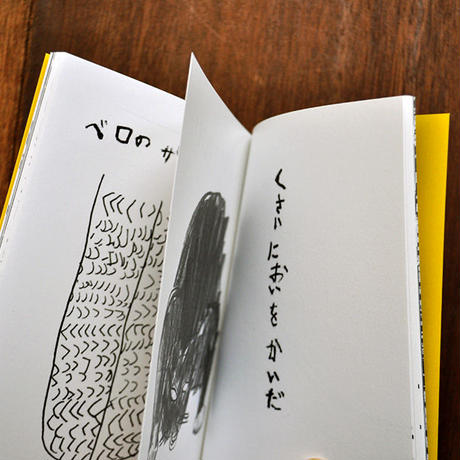 ベロの
くさい においを かいだ